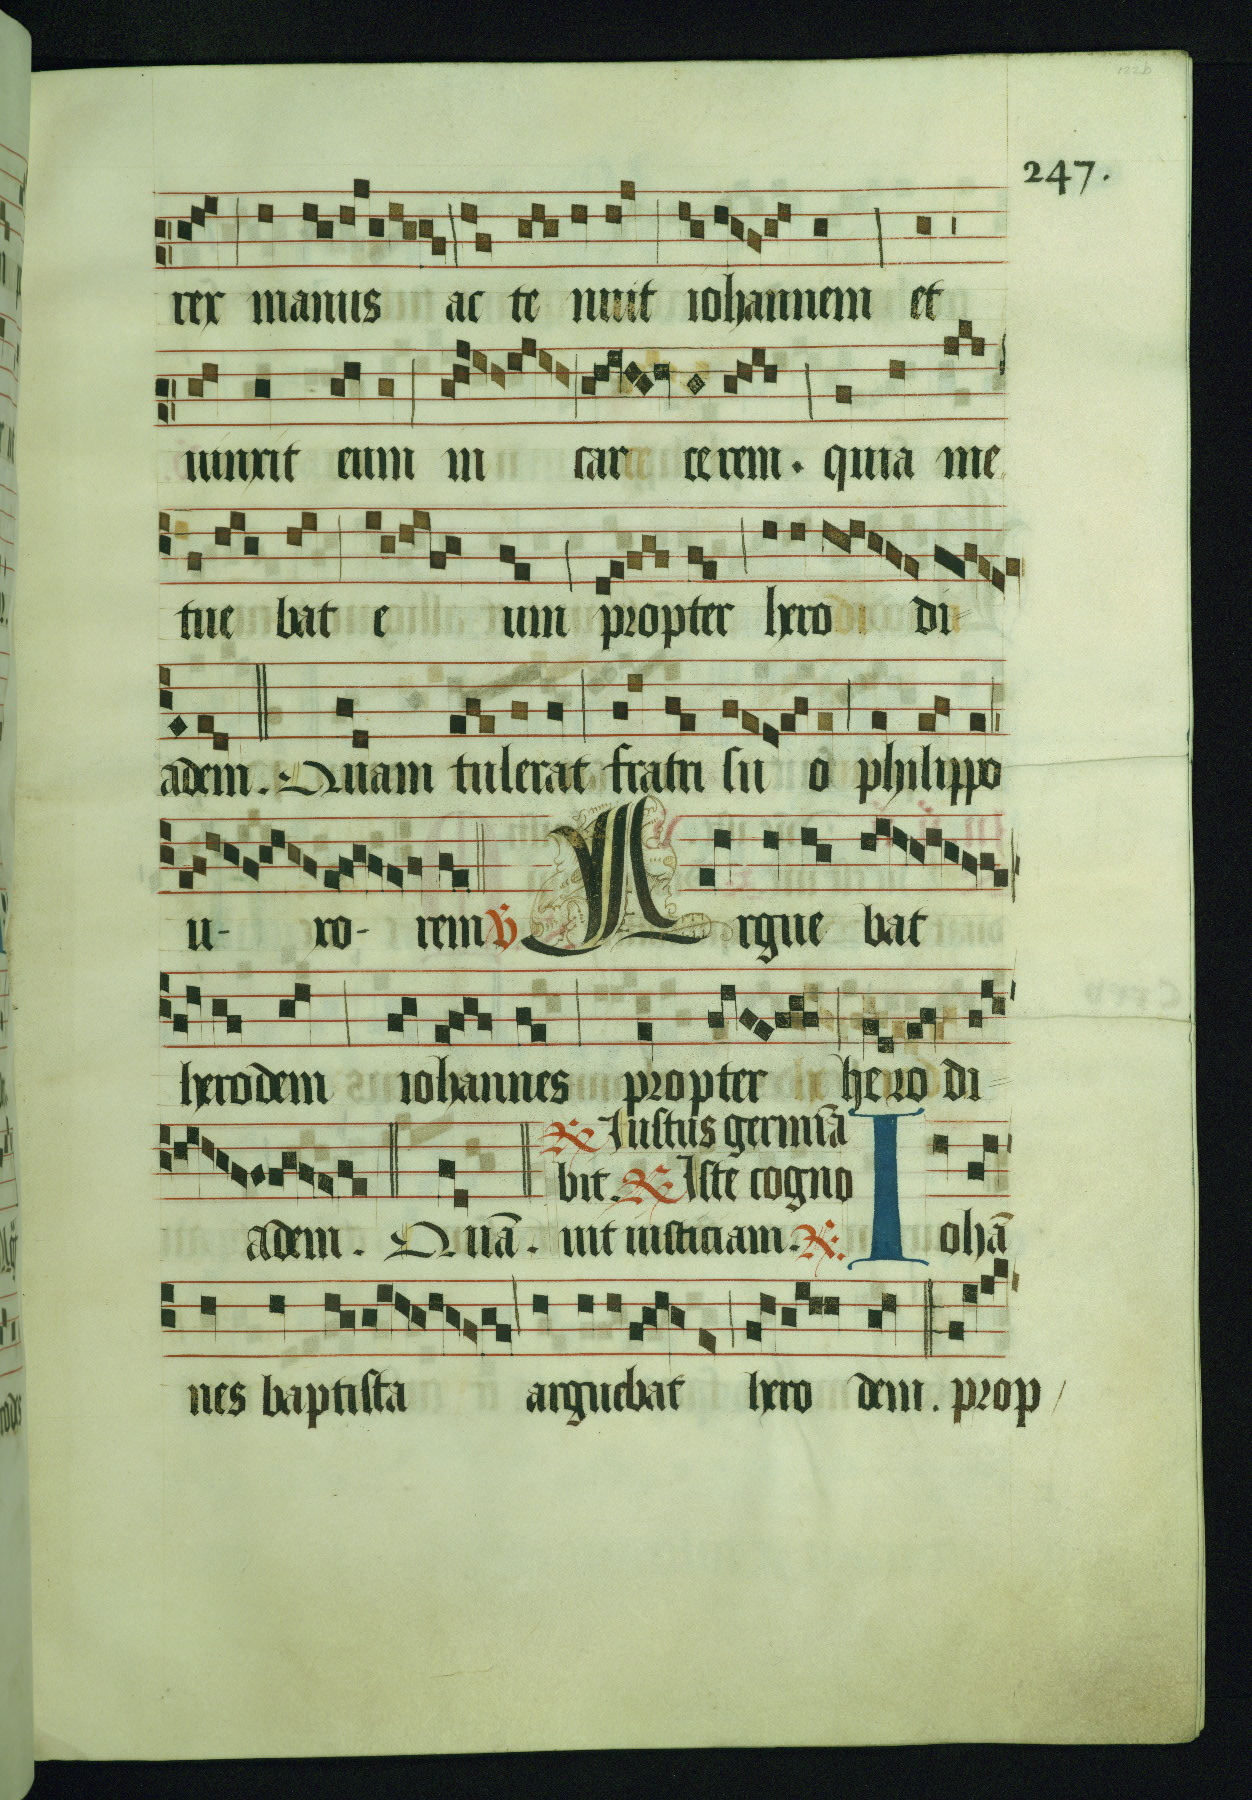 247.
rex manus ac te nuit iohannem et
uinxit eum in car ce rem. quia me
tue bat e um propter hero di
adem. Quam tulerat fratri su o philippo
u- xo- rem ℣ Argue bat
herodem iohannes propter hero di
℟ Iustus germinã
bit. ℟ Iste cogno
adem. Quã. uit iusticiam. ℟. Iohã
nes baptista arguebat hero dem. prop